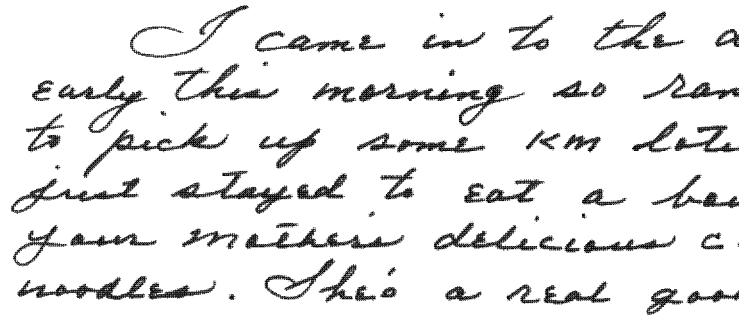 I came in to the a
early this morning so ran
to pick up some KM lote
just stayed to eat a bow
your mother's delicious c
noodles. She's a real goo